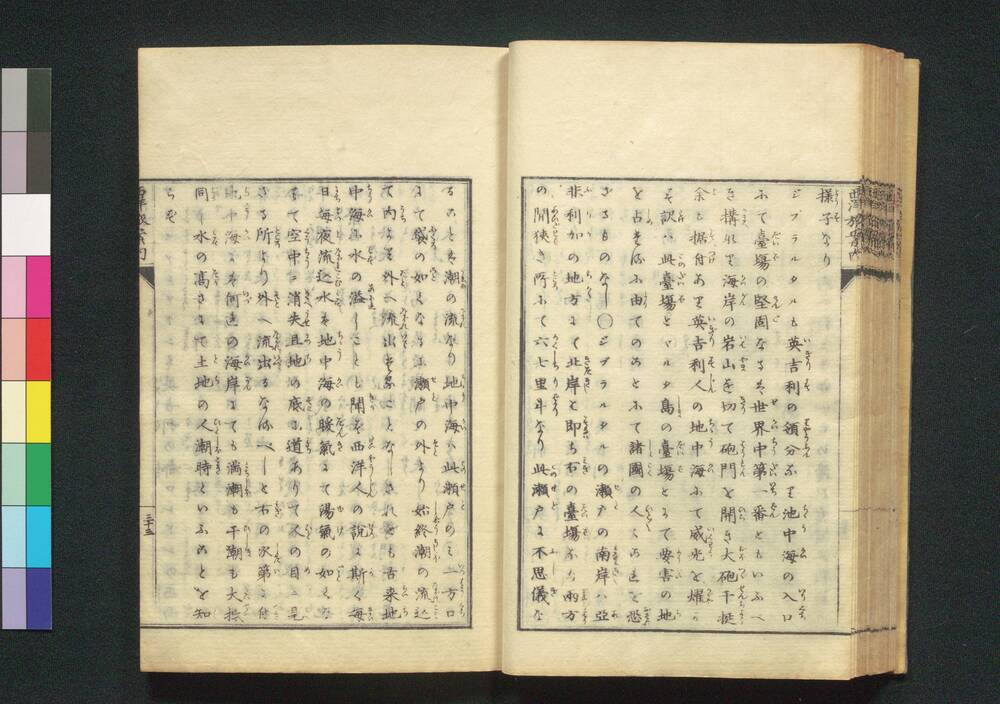 様子なり
ジブラルタルも英吉利の領分にて地中海の入口
にて臺場の堅固なるは世界中第一番ともいふべ
き構にて海岸の岩山を切て砲門を開き大砲千挺
余も据付あり英吉利人の地中海にて威光を燿か
す訳は此臺場とマルタ島の臺場とて要害の地
を占たるに由てのことにて諸國の人もこれを恐
ざるものなし〇ジブラルタルの瀬戸の南岸ハ亞
非利加の地方にて北岸ハ即ち右の臺場なり両方
の間狭き所にて六七里斗なり此瀬戸に不思儀な
ることは潮の流なり地中海ハ此瀬戸のミ一方口
にて袋の如くなるに瀬戸の外より始終潮の流込
て内よりは外へ流出ることなしされども古来地
中海に水の溢しことも聞ず西洋人の説に斯く毎
日毎夜流込水は地中海の暖氣にて陽氣の如くな
りて空中に消失且地の底に道ありて人の目に見
ざる所より外へ流出るなるべしと右の次第に付
地中海にては何れの海岸にても満潮も干潮も大抵
同し水の高さにて土地の人潮時といふことを知
らず
三十三